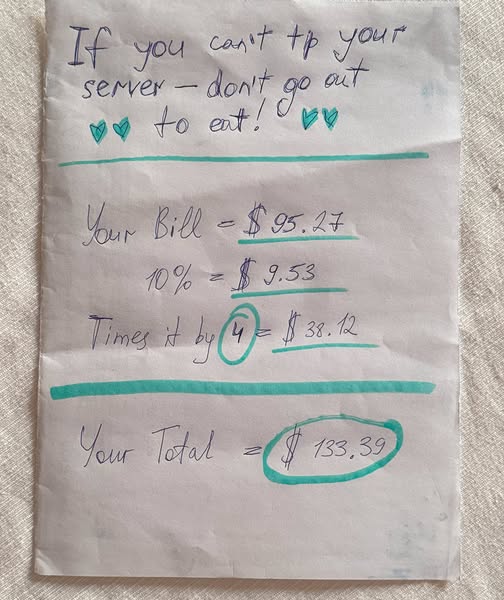 If you can't tip your
server – don't go out
to eat!
Your Bill = $ 95.27
10% = $ 9.53
Times it by 4 = $ 38.12
Your Total = $ 133.39